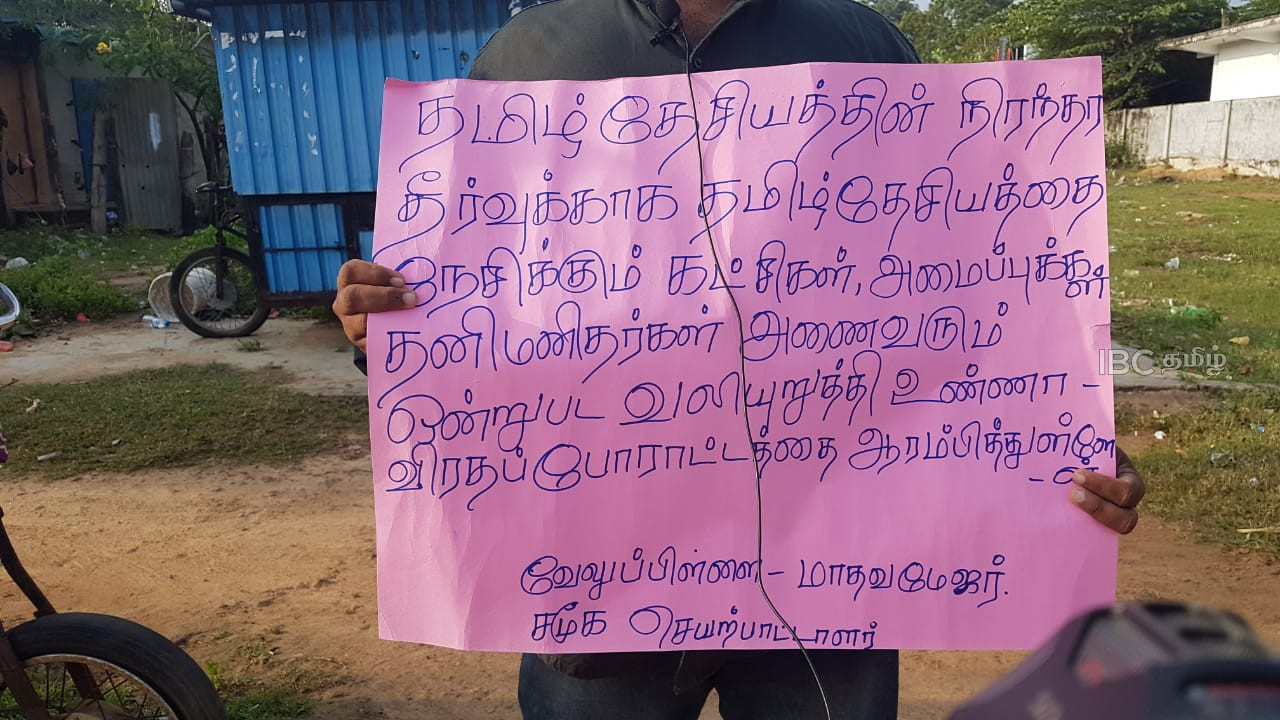 தமிழ்தேசியத்தின் நிரந்தர
தீர்வுக்காக தமிழ்தேசியத்தை
நேசிக்கும் கட்சிகள், அமைப்புக்கள்
தனிமனிதர்கள் அணைவரும்
ஒன்றுபட வலியுறுத்தி உண்ணா -
விரதப்போராட்டத்தை ஆரம்பித்துள்ளே
- ன்
வேலுப்பிள்ளை - மாதவமேஜர்.
சமூக செயற்பாட்டாளர்
IBC தமிழ்